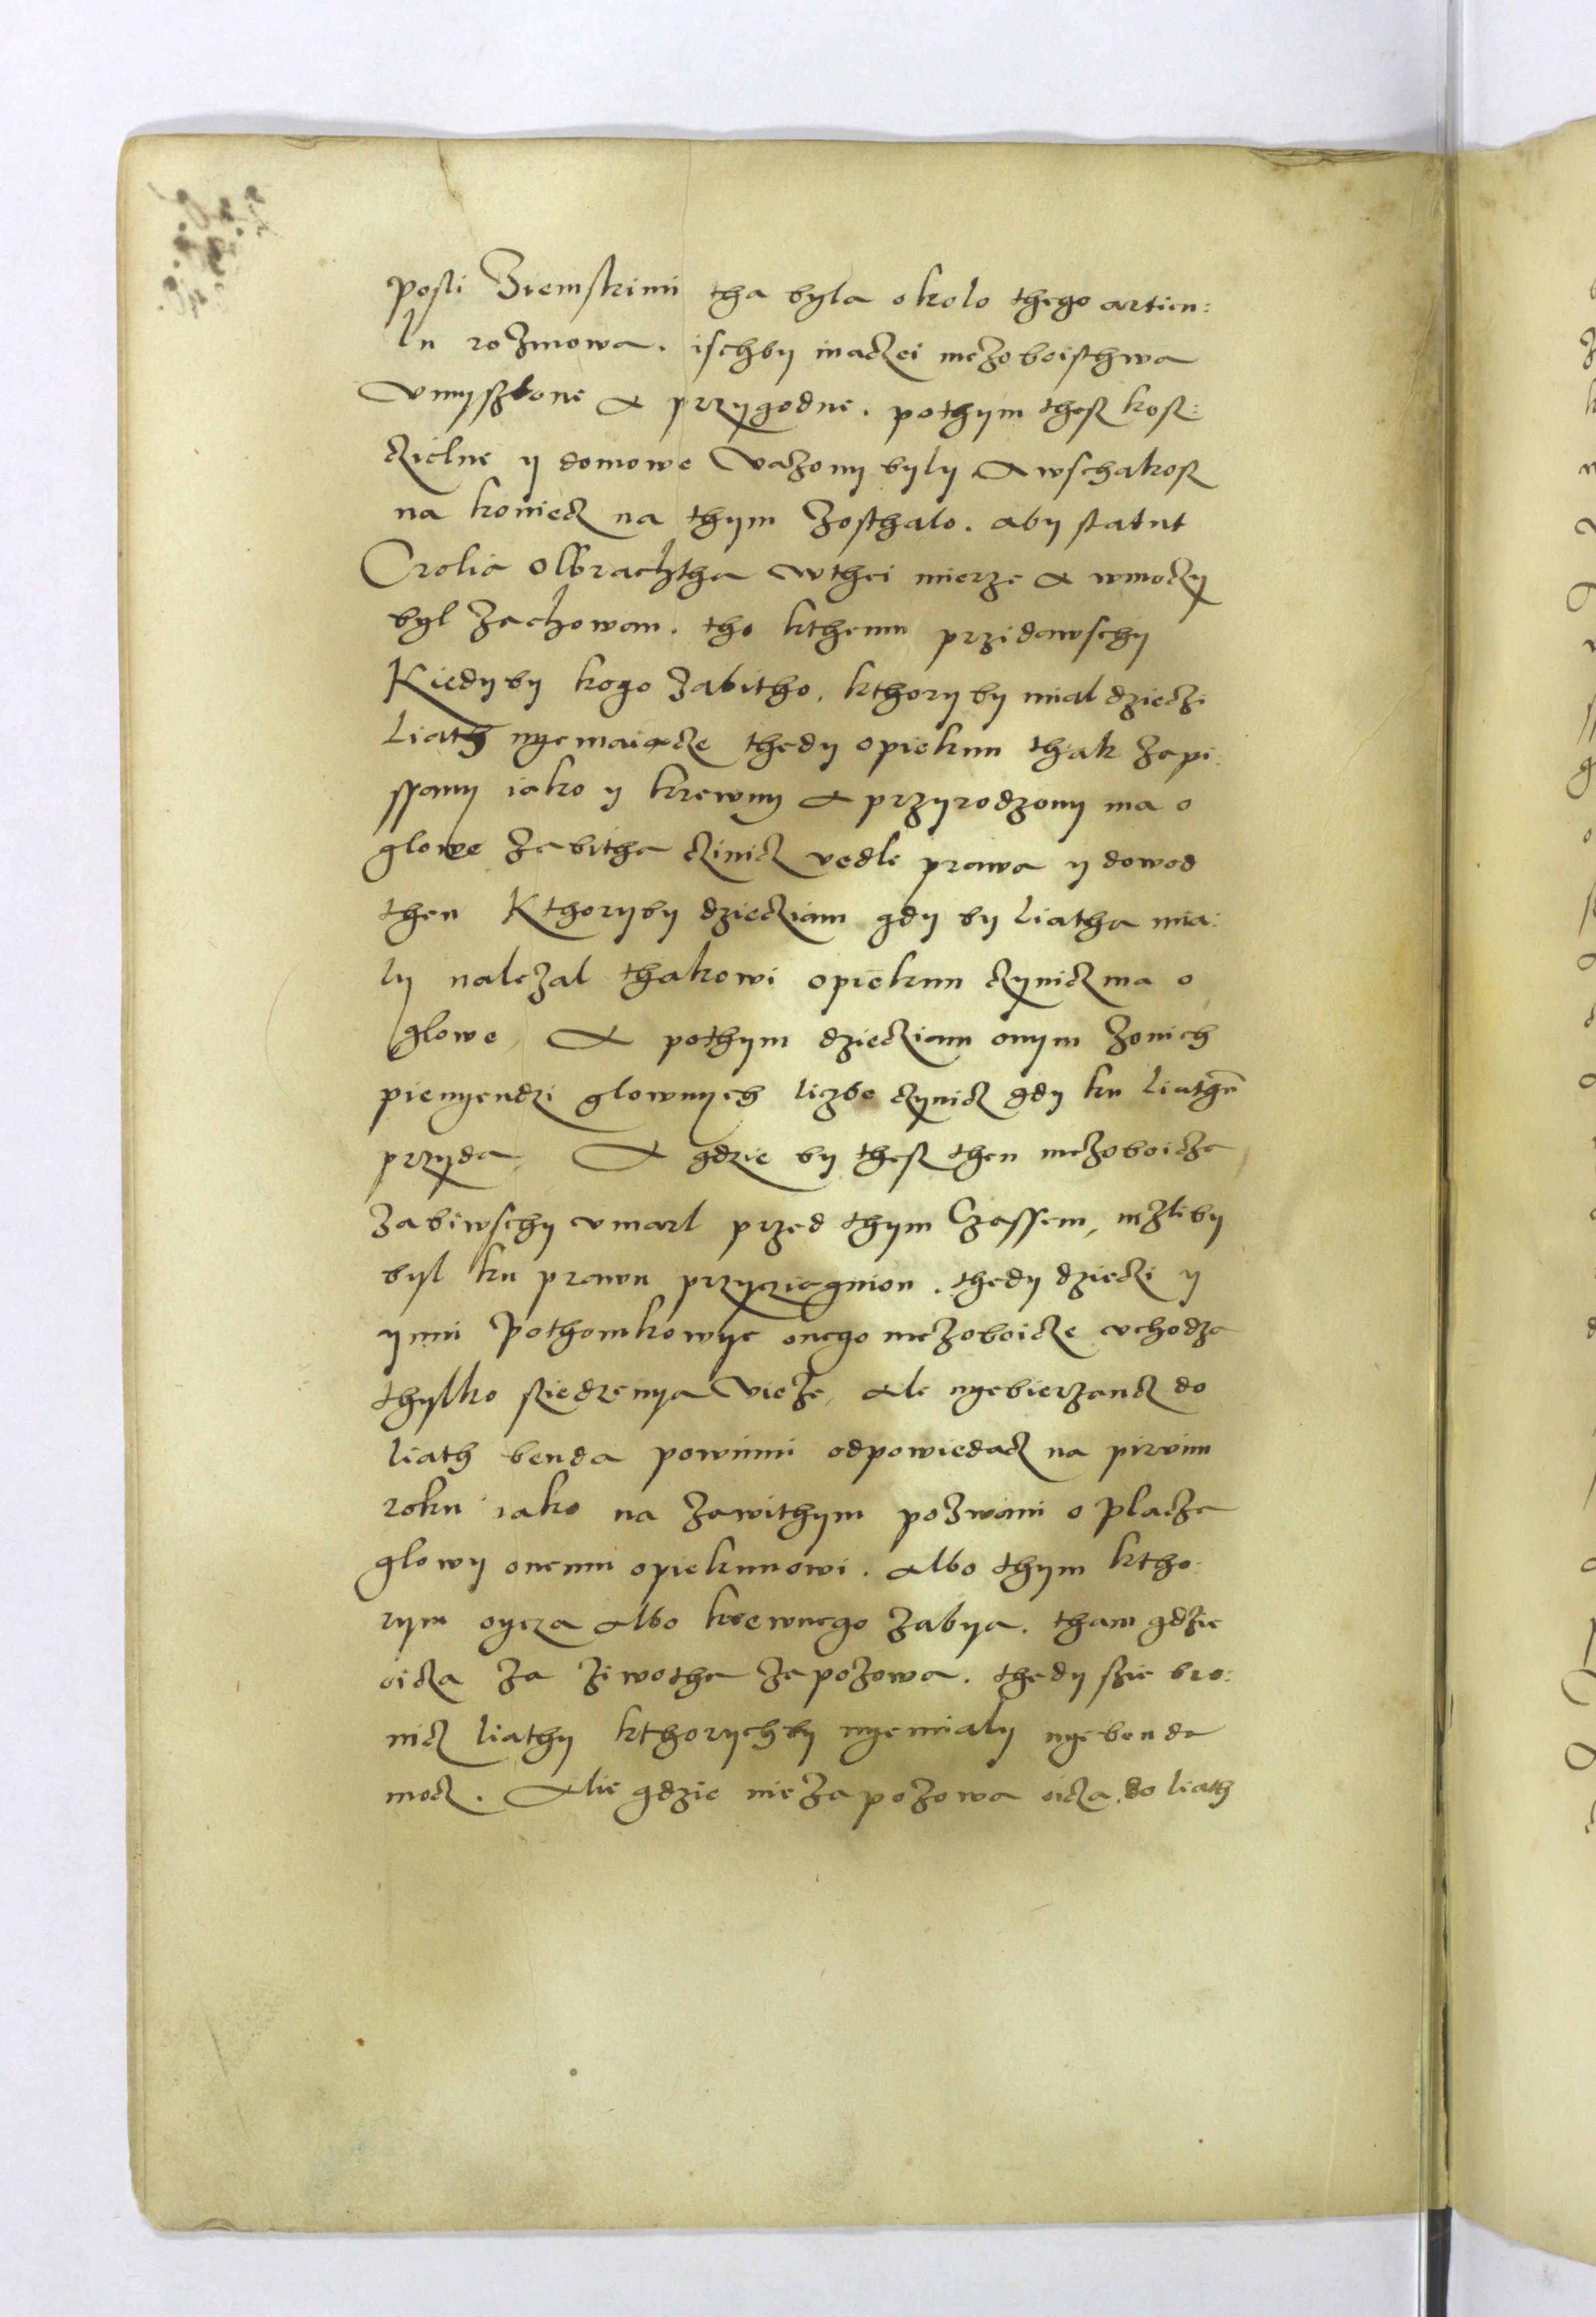 posli Ziemskimi tha byla okolo thego articu:
lu rozmowa. ischby inaczei mezoboisthwa
vmyszlone a przygodne. pothym thesz kosz:
czielne y domowe vazony byly A wschakosz
na koniecz na thym zosthalo. aby statut
Crolia Olbrachtha wthei mierze a wmoczy
byl zachowan. tho kthemu przidawschy
Kiedyby kogo zabitho. kthoryby mial dzieczi
liath nyemaiacze thedy opiekun thak zapi:
ssany iako y krewny a przyrodzony ma o
glowe zabitha czinicz vedle prawa y dowod
then Kthoryby dzieciam gdy by liatha mia:
ly nalezal thakowi opiekun czynicz ma o
glowe, A pothym dziecziam onym zonich
pienyendzi glownych liczbe czynicz gdy ku liathũ
przyda, A gdzie by thesz then mezoboicza
zabiwschy vmarl przed thym Czassem, nizliby
byl ku prawu przycziagnion. thedy dzieczi y
ynni Pothomkowye onego mezoboicze vchodza
thylko sziedzenya vieze, ale nyebierzancz do
liath benda powinni odpowiedacz na pirvim
roku iako na zawithym pozwani o placza
glowy onemu opiekunowi. Albo thym ktho:
rym oycza albo krewnego zabya. tham gdzie
oicza za ziwotha zapozowa. thedy szie bro:
nicz liathy kthorychby nyemialy nyebenda
mocz. Alie gdzie niezapozowa oicza, do liath